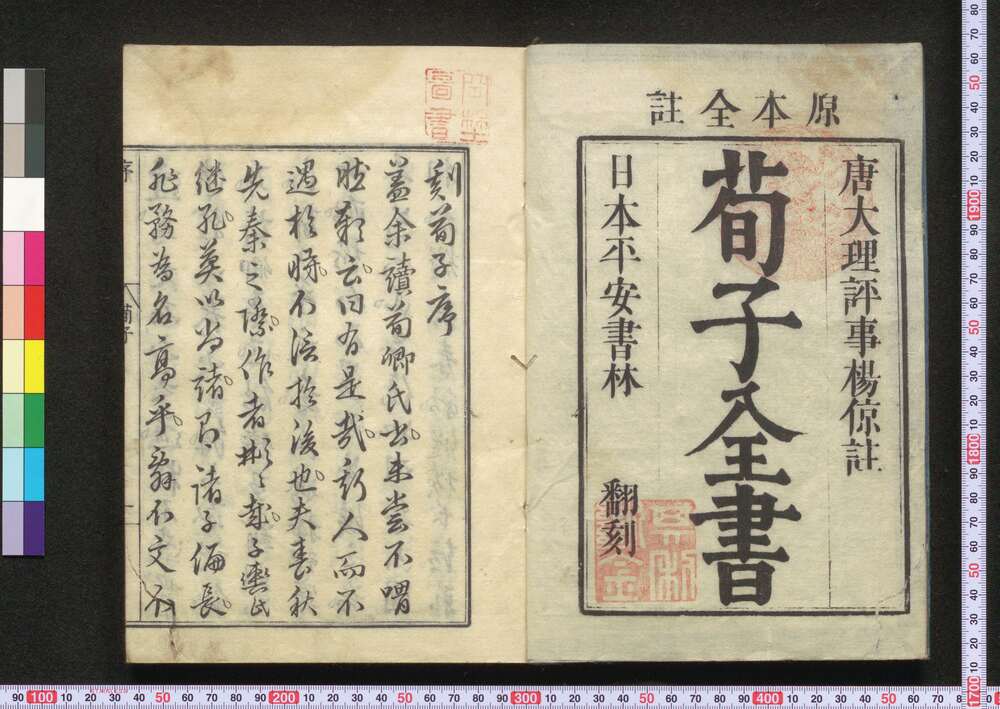 原本全註
唐大理評事楊倞註
荀子全書
日本平安書林
翻刻
刻荀子序
蓋余讀荀卿氏書未嘗不喟
然歎云曰有是哉斯人而不
遇於時不於後也夫春秋
先秦之際作者彬々哉子輿氏
継孔莫以尚諸即諸子偏長
非務為名高乎不文不
荀子
序